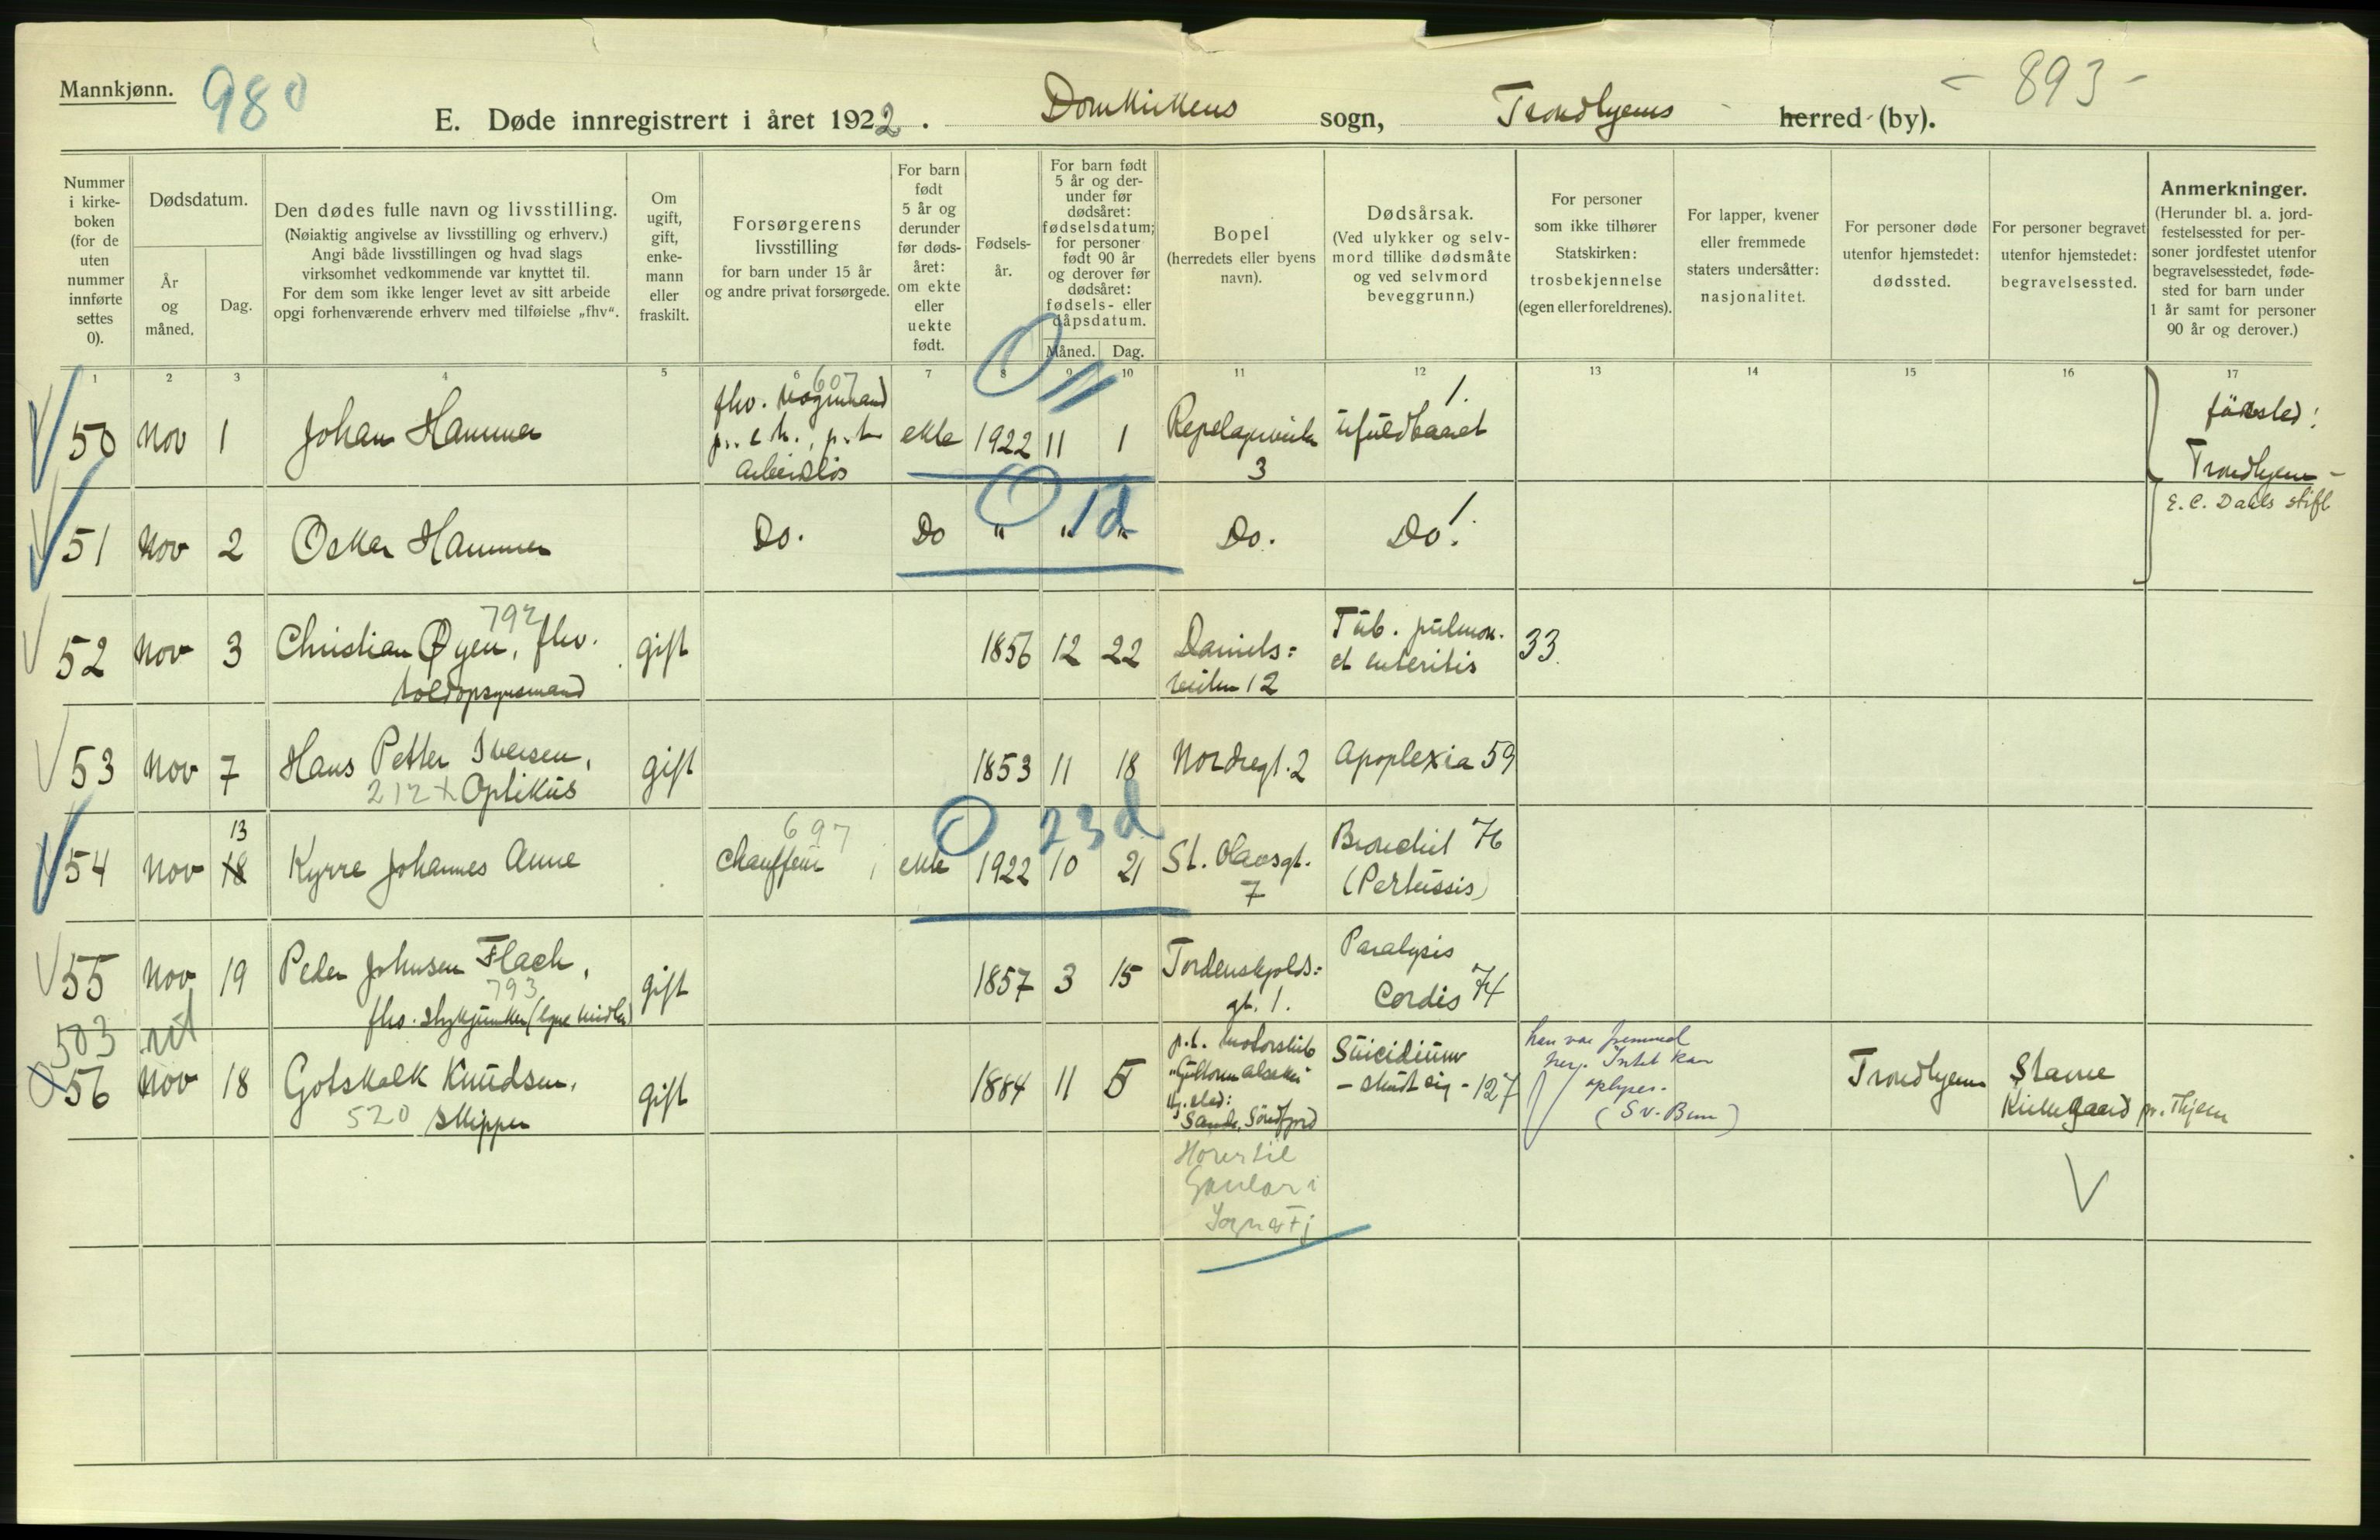 Mannkjønn.
980
- 893 -
E. Døde innregistrert i året 1922. Domkirkens sogn, Trondhjems herred (by).
Nummer i kirkeboken (for de uten nummer innførte settes 0).
Dødsdatum.
År og måned.
Dag.
Den dødes fulle navn og livsstilling.
(Nøiaktig angivelse av livsstilling og erhverv.)
Angi både livsstillingen og hvad slags
virksomhet vedkommende var knyttet til.
For dem som ikke lenger levet av sitt arbeide
opgi forhenværende erhverv med tilføielse „fhv“.
Om ugift, gift, enkemann eller fraskilt.
Forsørgerens livsstilling
for barn under 15 år
og andre privat forsørgede.
For barn født 5 år og derunder før dødsåret: om ekte eller uekte født.
Fødselsår.
For barn født 5 år og derunder før dødsåret: fødselsdatum; for personer født 90 år og derover før dødsåret: fødsels- eller dåpsdatum.
Måned. Dag.
Bopel
(herredets eller byens navn).
Dødsårsak.
(Ved ulykker og selvmord tillike dødsmåte og ved selvmord beveggrunn.)
For personer som ikke tilhører Statskirken: trosbekjennelse (egen eller foreldrenes).
For lapper, kvener eller fremmede staters undersåtter: nasjonalitet.
For personer døde utenfor hjemstedet: dødssted.
For personer begravet utenfor hjemstedet: begravelsessted.
Anmerkninger.
(Herunder bl. a. jordfestelsessted for personer jordfestet utenfor begravelsesstedet, fødested for barn under 1 år samt for personer 90 år og derover.)
1 2 3 4 5 6 7 8 9 10 11 12 13 14 15 16 17
50 Nov 1 Johan Hammer
607
fhv. vognmand
p.t.
arbeidsløs
ekte 1922 11 1
3
ufuldbaaret
!
Trondhjem -
E. C. Dahls stift
51 Nov 2 Oskar Hammer Do. Do " " " Do. Do!
1 d
52 Nov 3 Christian Øyen, fhv.
792
toldopsynsmand
gift 1856 12 22
Daniels=
veiten 12
Tub. pulmon.
et enteritis
33
53 Nov 7 Hans Petter Iversen,
212 x Optikus
gift 1853 11 18 Nordregt. 2 Apoplexia 59
54 Nov 13 18 Kyrre Johannes Aune
697
Chauffeur
ekte 1922 10 21
23 d
St. Olavsgt.
7
Bronchit 76
(Pertussis)
55 Nov 19 Peder Johnsen Flach,
793
gift 1857 3 15
Tordenskjolds=
gt. 1.
Paralysis
Cordis 74
503
56 Nov 18 Gotskalk Knudsen,
520 Skipper
gift 1884 11 5
p.t. motorskib
Sande, Söndfjord
Suicidium
- skudt sig - 127
han var fremmed
her. Intet kan
oplyses.
Trondhjem
Stavne
Kirkegaard pr. Thjem
Hører til
Gaular i